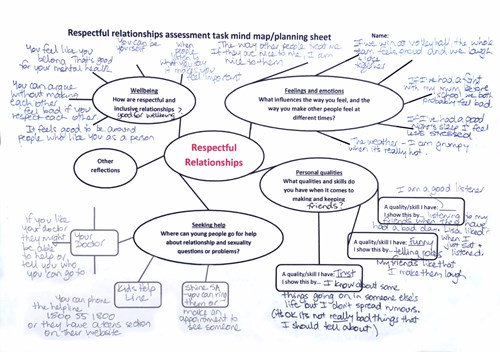 Respectful relationships assessment task mind map/planning sheet
Name:
You feel like you
belong. That's good
for your mental health
You can be
yourself
When
people
listen to
what you
say it
makes you
feel important
The way other people treat me
If they are nice to me, I am
nice to them
If we win at volleyball the whole
team feels proud and we laugh
together
If I've had a fight
with my mum before
school we both
probably feel bad
If I've had a good
night's sleep I feel
less stressed
The weather - I am grumpy
when its really hot.
You can argue
without making
each other
feel bad if you
respect each other
It feels good to be around
people who like you as a person
Wellbeing
How are respectful and
inclusive relationships
good for wellbeing?
Feelings and emotions
What influences the way you feel, and the
way you make other people feel at
different times?
Respectful
Relationships
Other
reflections
Personal qualities
What qualities and skills do
you have when it comes to
making and keeping
friends?
Seeking help
Where can young people go for
help about relationship and sexuality
questions or problems?
I am a good listener
A quality/skill I have:
I show this by: listening to my
friends when they have
had a bad day. Lisa liked
when I
just sat +
listened.
A quality/skill I have: Funny
I show this by: telling jokes
My friends like that
I make them laugh
A quality/skill I have: Trust
I show this by: I know about some
things going on in someone else's
life but I don't spread rumours.
(It's OK its not really bad things that
I should tell about)
If you like
your doctor
they might
be able
to help or
tell you who
you can go to
Your
Doctor
Kids Help
Line
You can phone
the helpline
1800 55 1800
or they have a teens section
on their website
Shine SA
- you can ring
them or
make an
appointment to
see someone